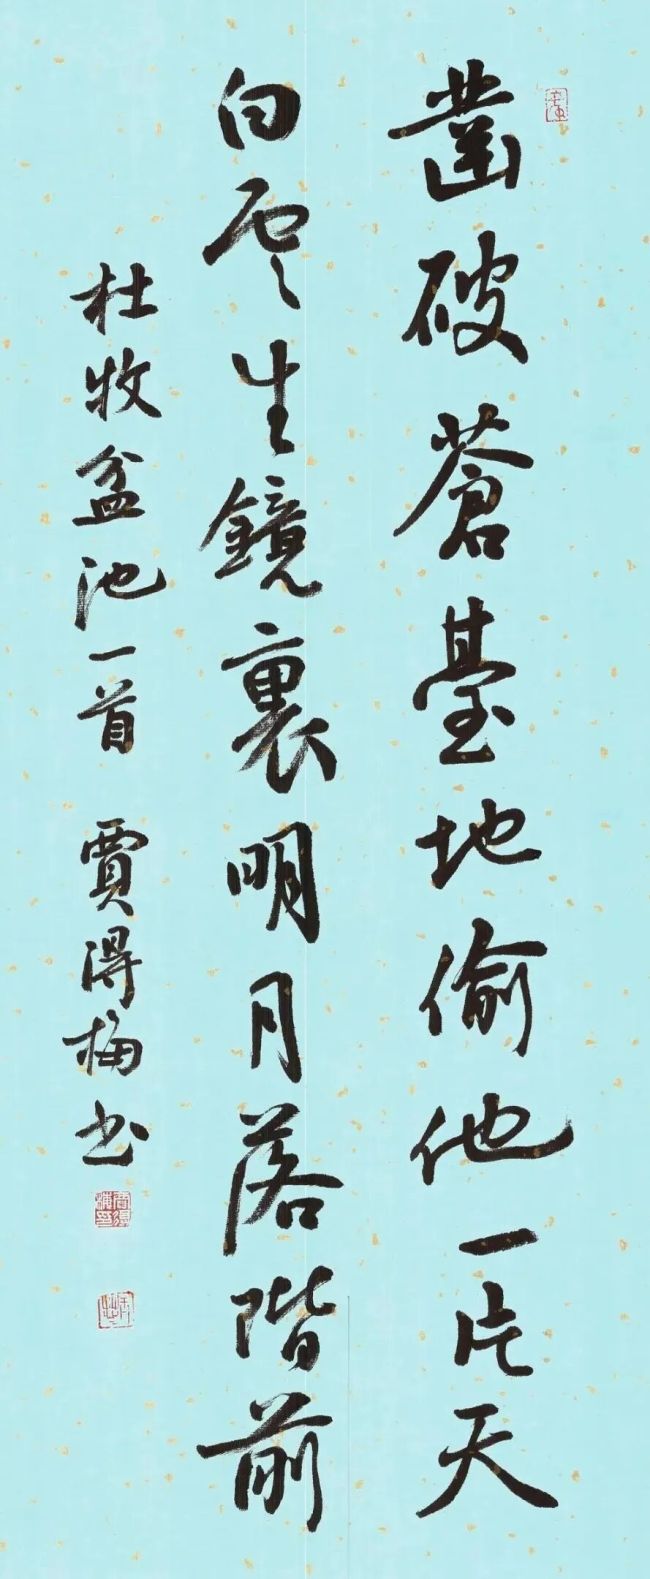 凿破蒼臺地偷他一片天
白雲生鏡裏明月落階前
杜牧盆池一首 賈得梅书